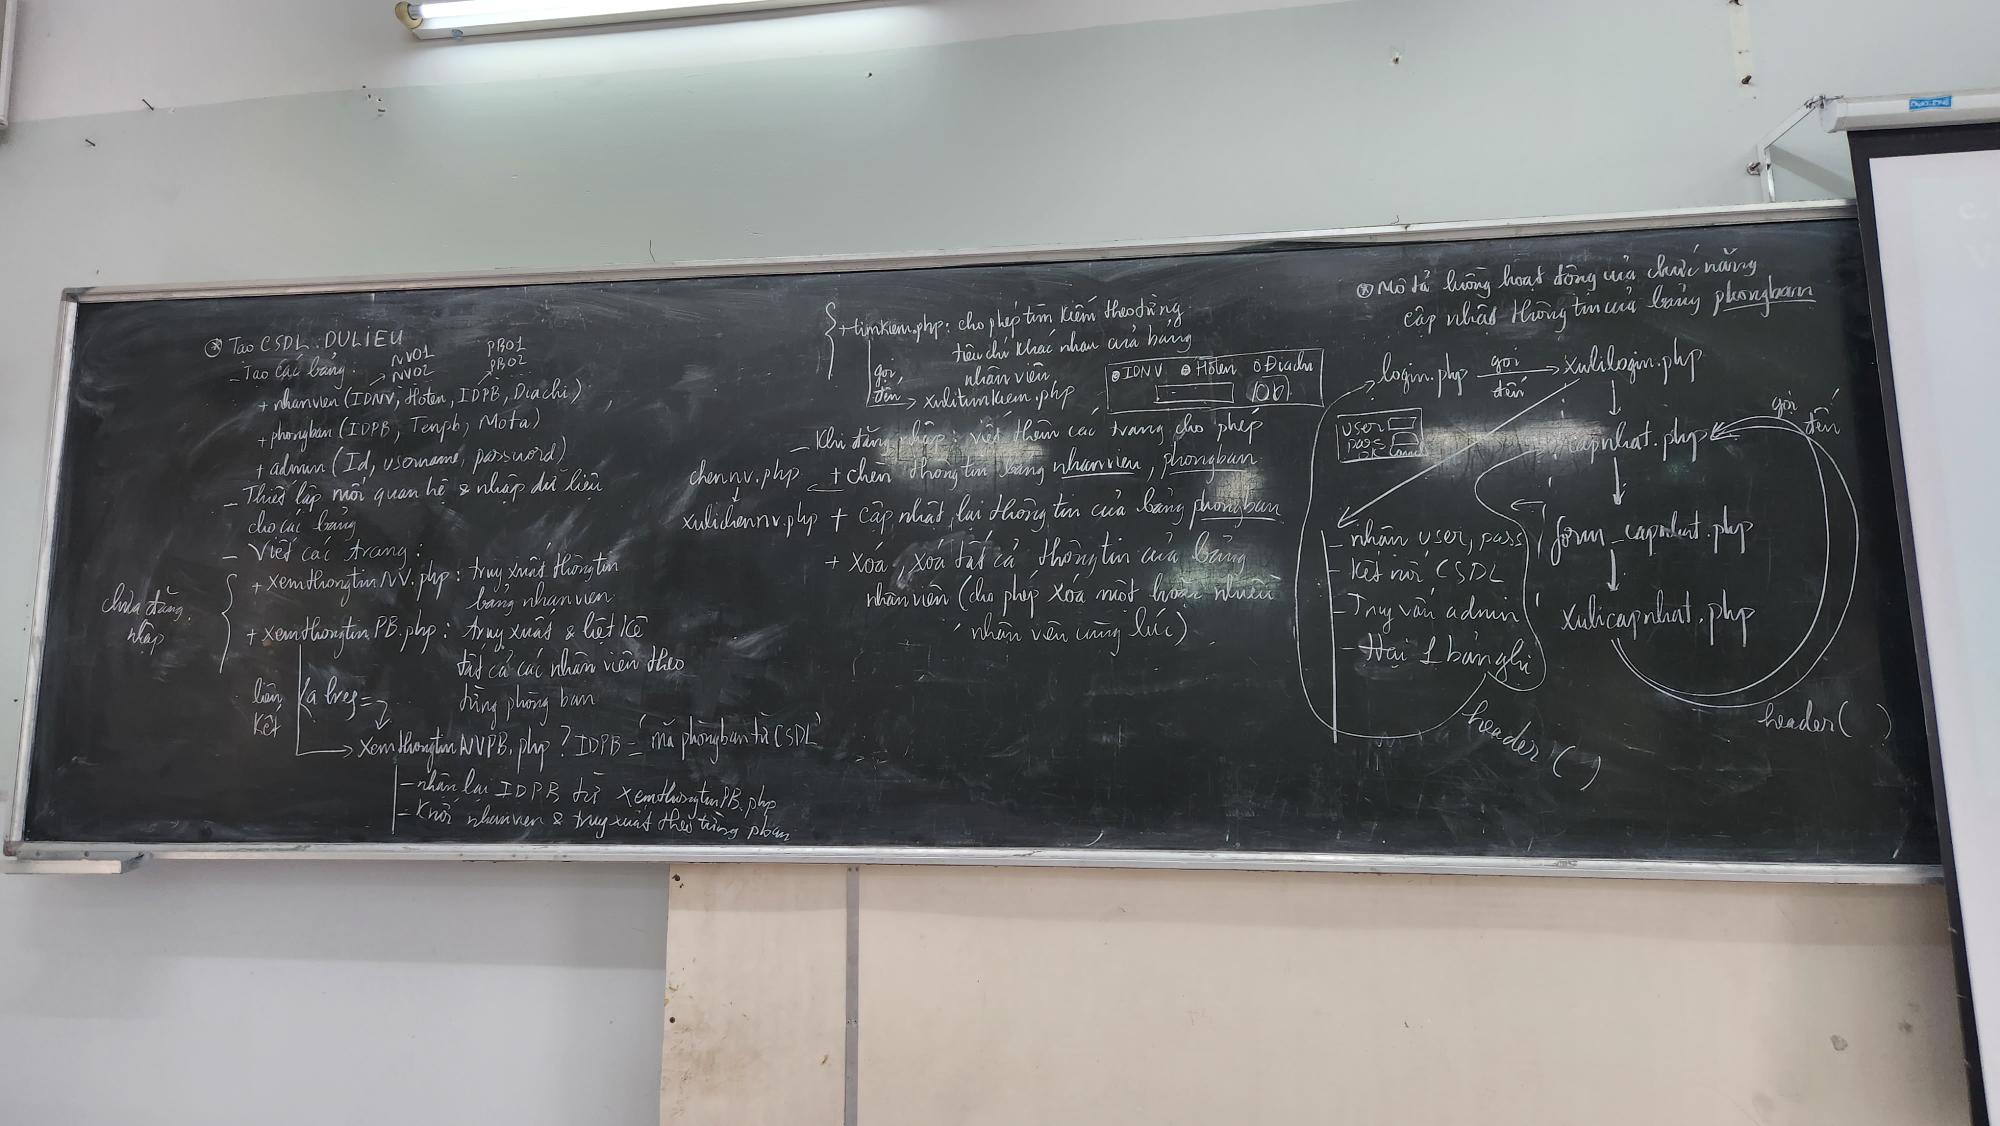 ⊛ Tạo CSDL: DULIEU
- Tạo các bảng:
NV01
NV02
PB01
PB02
+ nhanvien (IDNV, Hoten, IDPB, Diachi)
+ phongban (IDPB, Tenpb, Mota)
+ admin (Id, username, password)
- Thiết lập mối quan hệ & nhập dữ liệu
cho các bảng
- Viết các trang:
chưa đăng
nhập
+ xemthongtinNV.php: truy xuất thông tin
bảng nhanvien
+ xemthongtinPB.php: truy xuất & liệt kê
tất cả các nhân viên theo
từng phòng ban
liên
kết
<a href=
xemthongtinNVPB.php?IDPB='mã phòng ban từ CSDL'
- nhận lại IDPB từ xemthongtinPB.php
- nhanvien & truy xuất theo từng phban
+ timkiem.php: cho phép tìm kiếm theo từng
tiêu chí khác nhau của bảng
nhân viên
gọi
đến
xulitimkiem.php
IDNV Hoten Diachi
OK
- Khi đăng nhập: viết thêm các trang cho phép
chennv.php
+ chèn thông tin bảng nhanvien, phongban
xulichennv.php
+ cập nhật lại thông tin của bảng phongban
+ xoá, xoá tất cả thông tin của bảng
nhân viên (cho phép xóa một hoặc nhiều
nhân viên cùng lúc)
⊛ Mô tả luồng hoạt động của chức năng
cập nhật thông tin của bảng phongban
login.php gọi đến xulilogin.php
user
pass
OK
capnhat.php
gọi
đến
form_capnhat.php
xulicapnhat.php
- nhận user, pass
- Kết nối CSDL
- Truy vấn admin
- Hại 1 bản ghi
header()
header()